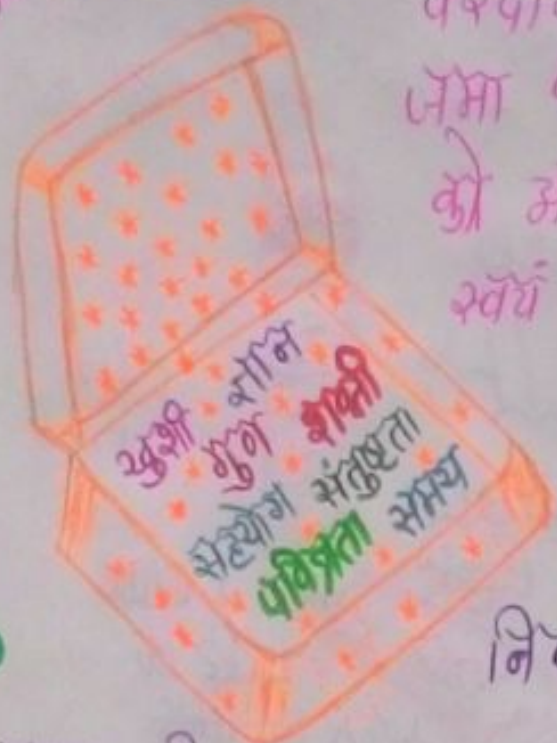 जमा
को
स्वयं
खुशी ज्ञान
गुण शक्ती
सहयोग संतुष्टता
पवित्रता समय